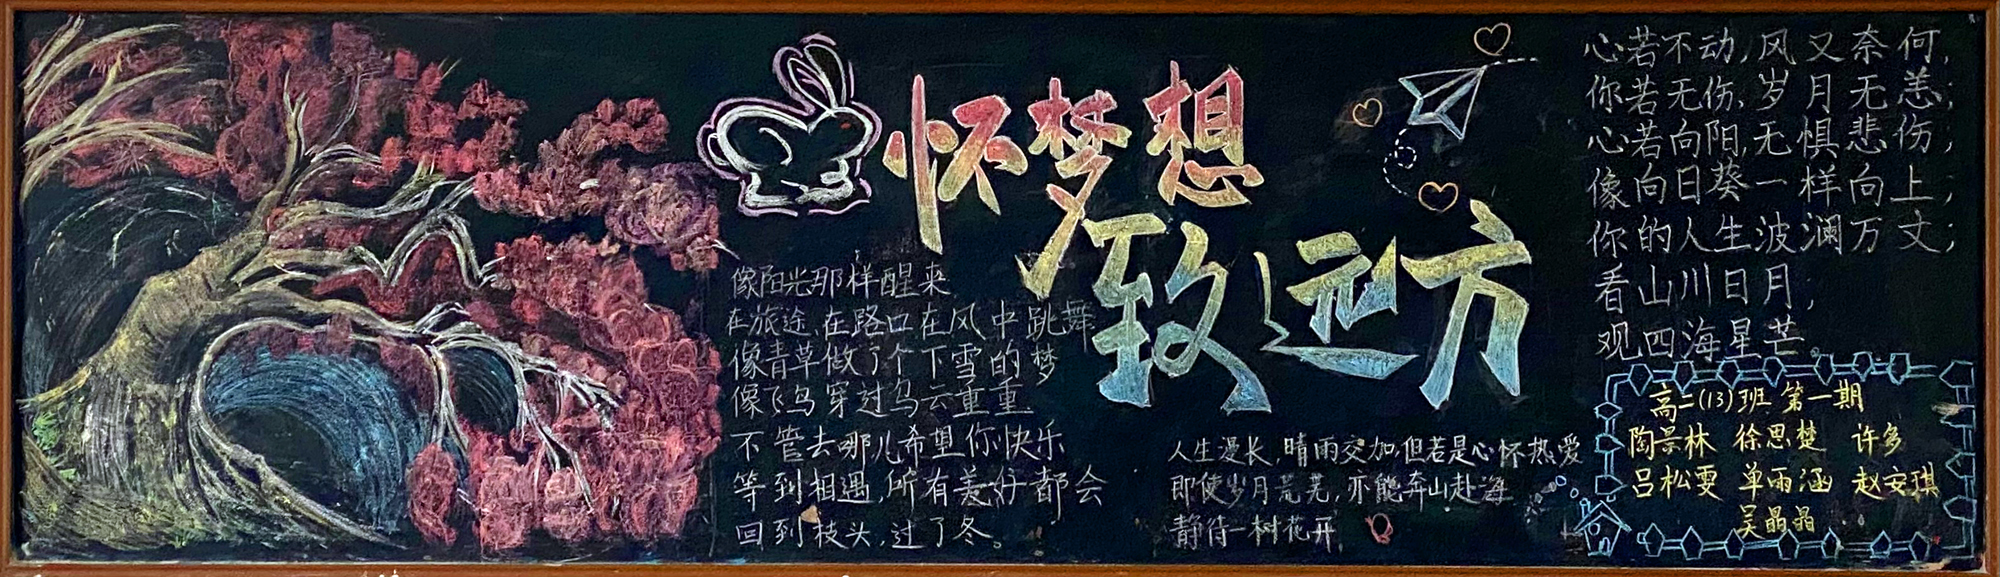 怀梦想
致远方
像阳光那样醒来
在旅途,在路口在风中跳舞
像青草做了个下雪的梦
像飞鸟穿过乌云重重
不管去哪儿希望你快乐
等到相遇,所有美好都会
回到枝头,过了冬。
人生漫长,晴雨交加,但若是心怀热爱
即使岁月荒芜,亦能奔山赴海
静待一树花开
心若不动,风又奈何,
你若无伤,岁月无恙;
心若向阳,无惧悲伤;
像向日葵一样向上;
你的人生波澜万丈;
看山川日月;
观四海星芒。
高二(13)班 第一期
陶景林 徐思楚 许多
吕松雯 单雨涵 赵安琪
吴晶晶